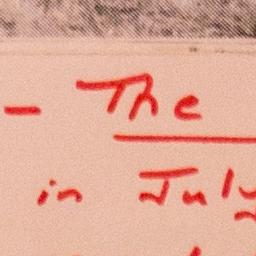 - The
in July